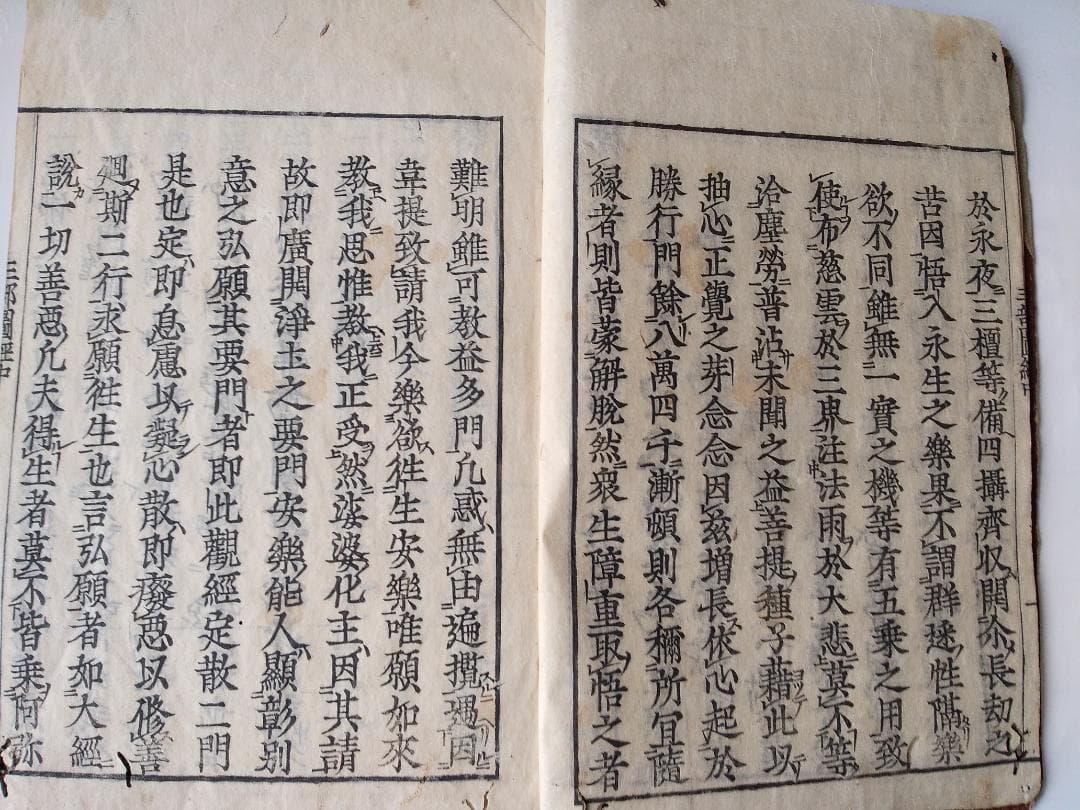 於永夜三檀等備四攝齊収開示長劫之
苦因悟入永生之樂果不謂群迷性隔樂
欲不同雖無一實之機等有五乘之用致
使布慈雲於三界注法雨於大悲莫不等
洽塵勞普沾未聞之益菩提種子藉此以
抽心正覺之芽念念因茲增長依心起於
勝行門餘八萬四千漸頓則各稱所冝隨
縁者則皆蒙解脫然衆生障重取悟之者
難明雖可教益多門凡惑無由遍攬遇因
韋提致請我今樂欲徃生安樂唯願如來
教我思惟教我正受然娑婆化主因其請
故即廣開淨土之要門安樂能人顯彰別
意之弘願其要門者即此觀經定散二門
是也定即息慮以凝心散即癈惡以修善
廻斯二行求願徃生也言弘願者如大經
說一切善惡凡夫得生者莫不皆乗阿弥